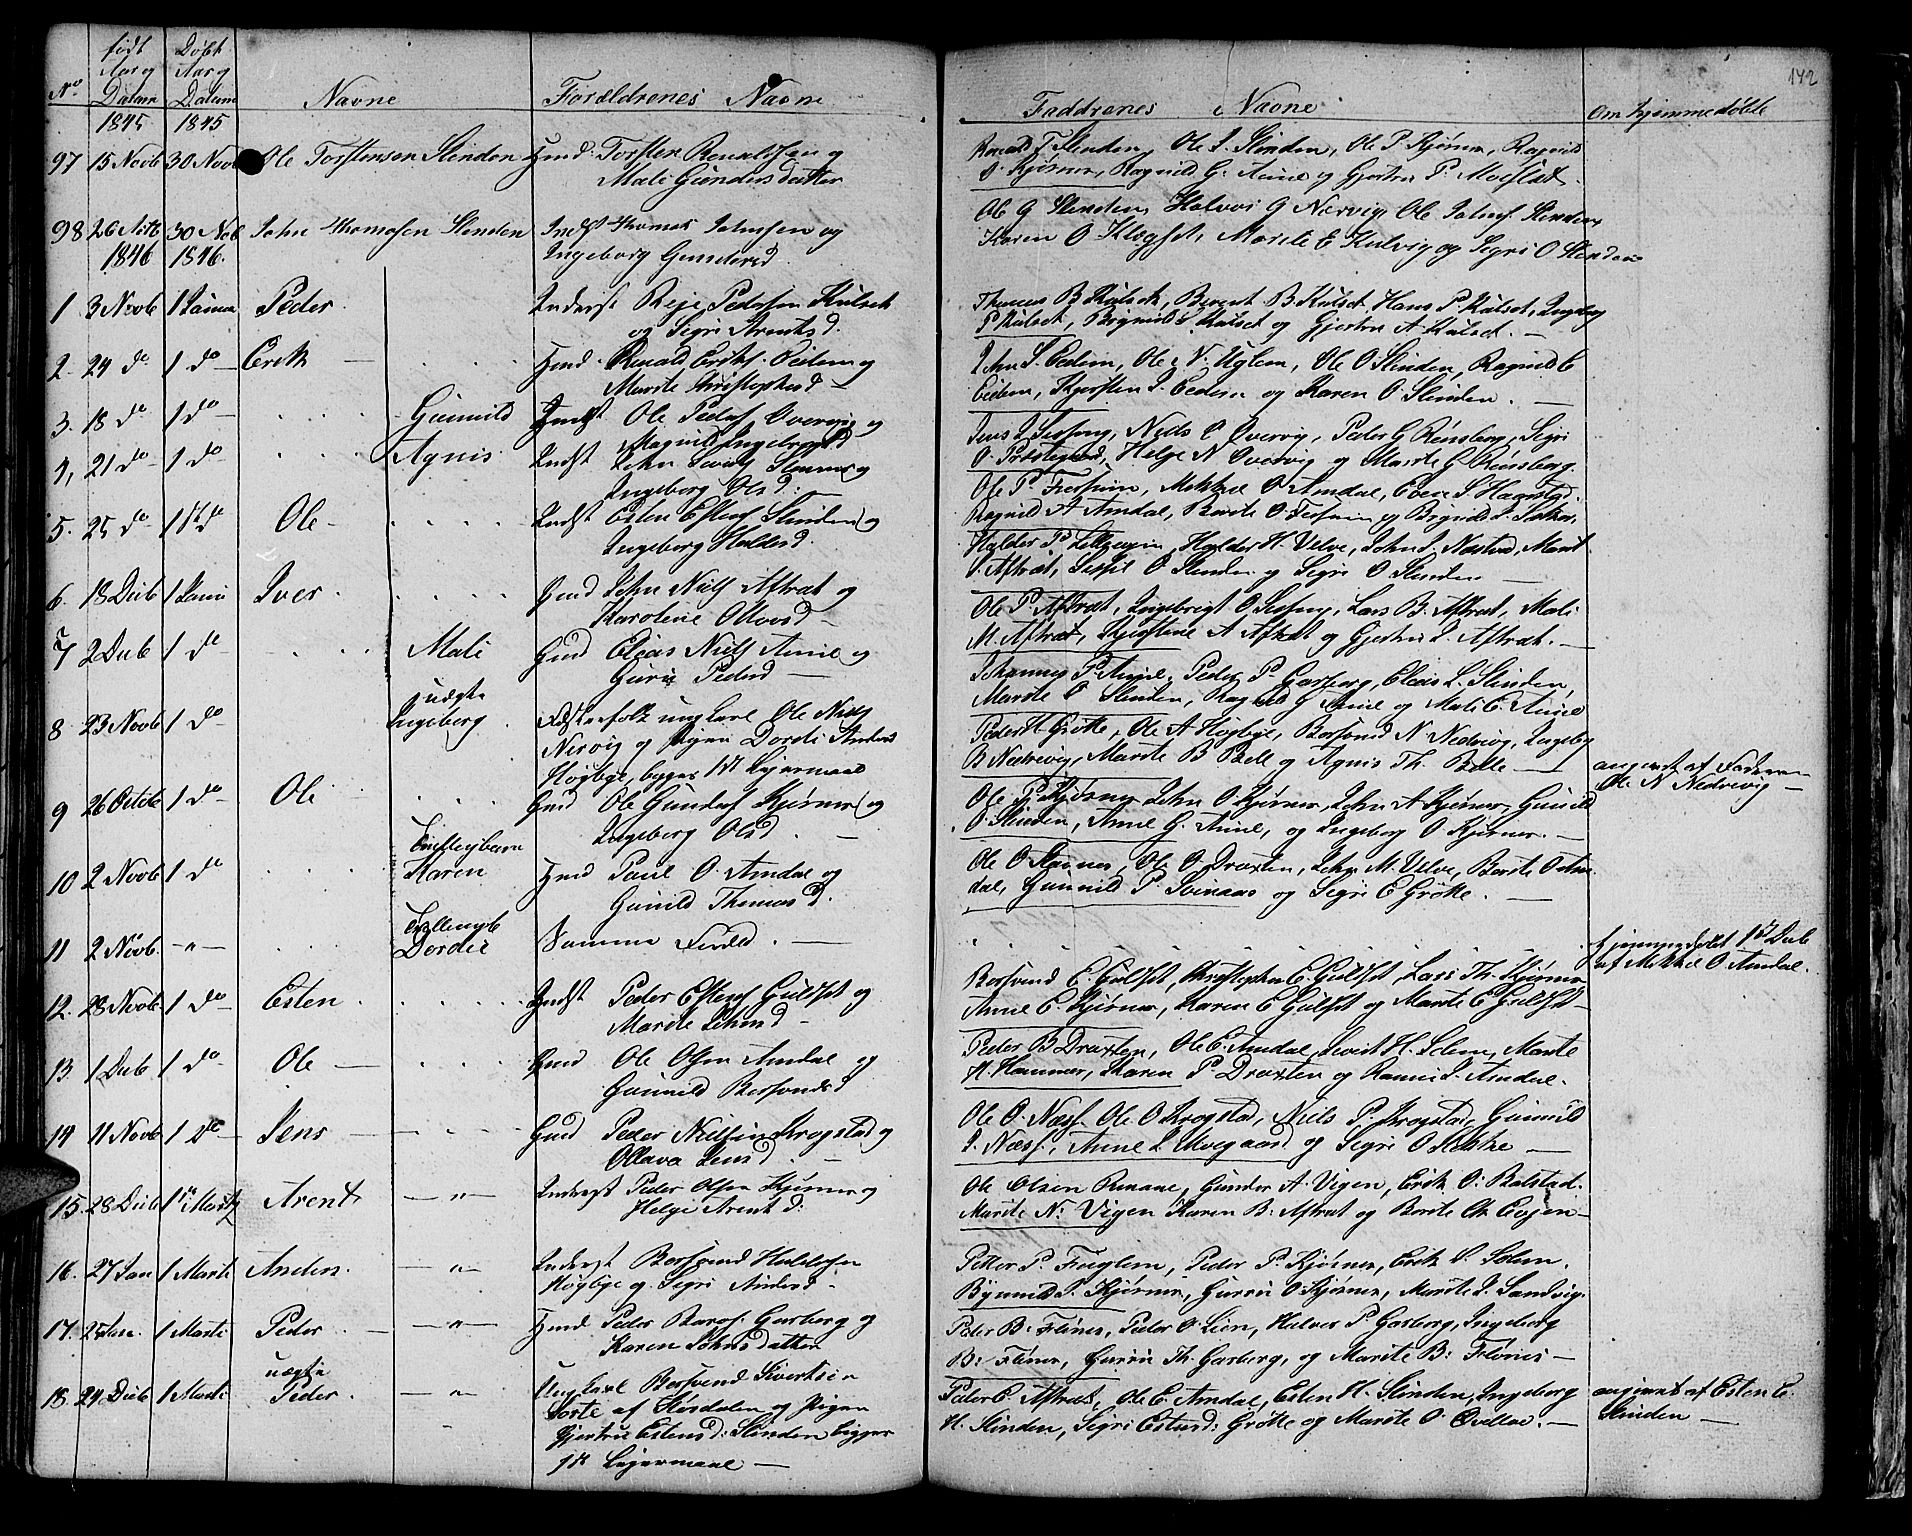 142
No
født Aar og Datum
Døbt Aar og Datum
Navne
Forældrenes Navne
Faddrenes Navne
Om hjemmedøbte
1845 1845
97 15 Novb 30 Novb Ole Torstensen Slinden Gmd: Torsten Ronaldsen og
Mali Gundersdatter
Ronald T Slinden, Ole J. Slinden, Ole P. Kjørner, Ragnild
O. Kjørner, Ragnild G. Aune og Gjertru P. Moeslet.
98 26 30 Nob John Thomasen Slinden Indst Thomas Johnsen og
Ingeborg Gundersd.
Ole G Slinden, Halvor G Nærvig, Ole Johnsf Slinden,
Karen O Klegset, Marite E Kulvig og Segri O Slinden
1846 1846.
1 3 Novb 1 Januar Peder. Inderst Reje Pedersen Kulset
og Segri Arentsd.
Thomas B Kulset, Berent B. Kulset, Hans P. Kulset, Ingeborg
P Kulset, Brynild Kulset og Gjertru A Kulset.
2. 24 do 1 do Erik Gmd. Ronald Eriks. Eidem og
Marite Christophersd
John S. Eedem, Ole N. Uglem, Ole O Slinden, Ragnild E
Eidem, Kjersten J. Eedem og Karen O. Slinden.
3. 18 do 1 do Gunnild Gmdst Ole Pedersf Overvig og
Magnild Ingebrigtsd
Jens J Sesseng, Neds O Overvig, Peder G Rønsberg, Segri
O. Præstegaard, Helge N Overvig og Marite G Rønsberg.
4, 21 do 1 do Agnis. Indst John Slemmer og
Ingeborg Olsd.
Ole P. Fuglem, Mekkel O Amdal, Even S. Haarstad.
Ragnild A Amdal, Berite O. og Brynild J.
5. 25 do 1 do Ole Indst Esten Estens Slinden og
Ingeborg Haldersd.
Halder P. Halder H. Velve, John J. Næstad, Marit
J. Aftret, Lessil O Slinden og Segri O Slinden
6. 18 Deeb 1 Janu Iver. Gmd John Niels Aftret og
Karoline Olavsd
Ole P. Aftret, Ingebrigt O Sesseng, Lars B. Aftret, Mali
M. Aftret, A Aftret og Gjertru J. Aftret.
7 2 Deeb 1 do Mali Gmd Eleas Niels Aune og
Guru Pedersd
Johannes P. Aune, Peder P. Garberg, Eleas L. Slinden,
Marite O Slinden, Ragnild G Aune og Mali E. Aune
8 23 Novb 1 do uægte
Ingeborg. Fæstefolk ungkarl Ole Niels
Nervig og Pigen Dordi Anders
Høgbye, begges 1st Lejermaal
Peder H Grøtte, Ole A Høgbye, Bersvend N Nedrevig, Ingeborg
B Nedrevig, Marite B Bele og Agnis Th. Belle
angivet af Faderen
Ole N Nedrevig
9 26 Octob 1 do Ole Gmd Ole Gunders Kjørner og
Ingeborg Olsd.
Ole P. Kjørner, John O. Kjørner, John A Kjørner, Gunild
O. Slinden, Anne G. Aune, og Ingeborg O. Kjørner.
10 2 Novb 1 do Tvillingbarn
Karen Gmd Paul O. Amdal og
Gunild Thomasd.
Ole O Stavnes, Ole O Draxten, John M. Velve, Berite O Am-
dal, Gunnild P. Svinaas og Segri E Grøtte.
11 2 Novb. Tvillingb
Dordei Samme Foræld.
hjemmedøbt 1st Deeb
af Mekkel O Amdal.
12. 28 Novb. 1 do Esten. Indst Peder Estens Gulset og
Marite Johnsd
Bersvend E. Gulset, Christopher E. Gulset, Lars Th. Kjørner
Anne E. Kjørner, Karen E Gulset og Marite E Gulset
13. 1 Deeb 1 do Ole Gmd Ole Olsen Amdal og
Gunnild Bersvendsd
Peder B Draxten, Ole E. Amdal, Severt H. Solem, Marite
H. Hammer, Karen P Draxten og Ranni J. Amdal.
14 11 Novb 1 do Jens Gmd Peder Nielsen Krogstad og
Ollava Jensd.
Ole O. Næss. Ole O Krogstad, Niels P. Krogstad, Gunnild
J. Næss, Anne J. Moegaard og Segri O Stokke
15. 28 Deeb 1 Martz Arent Inderst Peder Olsen Kjørner og
Helge Arentsd:
Ole Olsen Renaae, Gunder A. Vigen, Erik O. Balstad.
Marite N. Vigen Karen B: Aftrat og Berite Ch. Evjen
16. 27 Jan 1 Marti Anders. Inderst Bersvend Haldosen
Høgbye og Segri Andersd
Petter P. Fuglem, Peder P. Kjørner, Erik S. Solem.
Brynild P. Kjørner, Gurru O. Kjørner, Marite J. Sandvig.
17. 25 Jan. 1 Marti Peder Gmd Peder Garberg og
Karen Johnsdatter
Peder B: Flønes, Peder O. Lien, Halvor P Garberg, Ingeborg
B: Flønes, Gurru Th. Garberg, og Marite B: Flønes
18. 24 Deeb 1 Marti uægte
Peder. Ung Karl Bersvend Sivertsen
Sorte af Størdalen og Pigen
Gjertru Estensd: Slinden begges
1st Lejermaal
Peder E. Aftret, Ole E. Amdal, Esten H. Slinden, Ingeborg
H. Slinden, Segri Estensd: Grøtte og Marite O. Ovellae.
angivet af Esten E.
Slinden